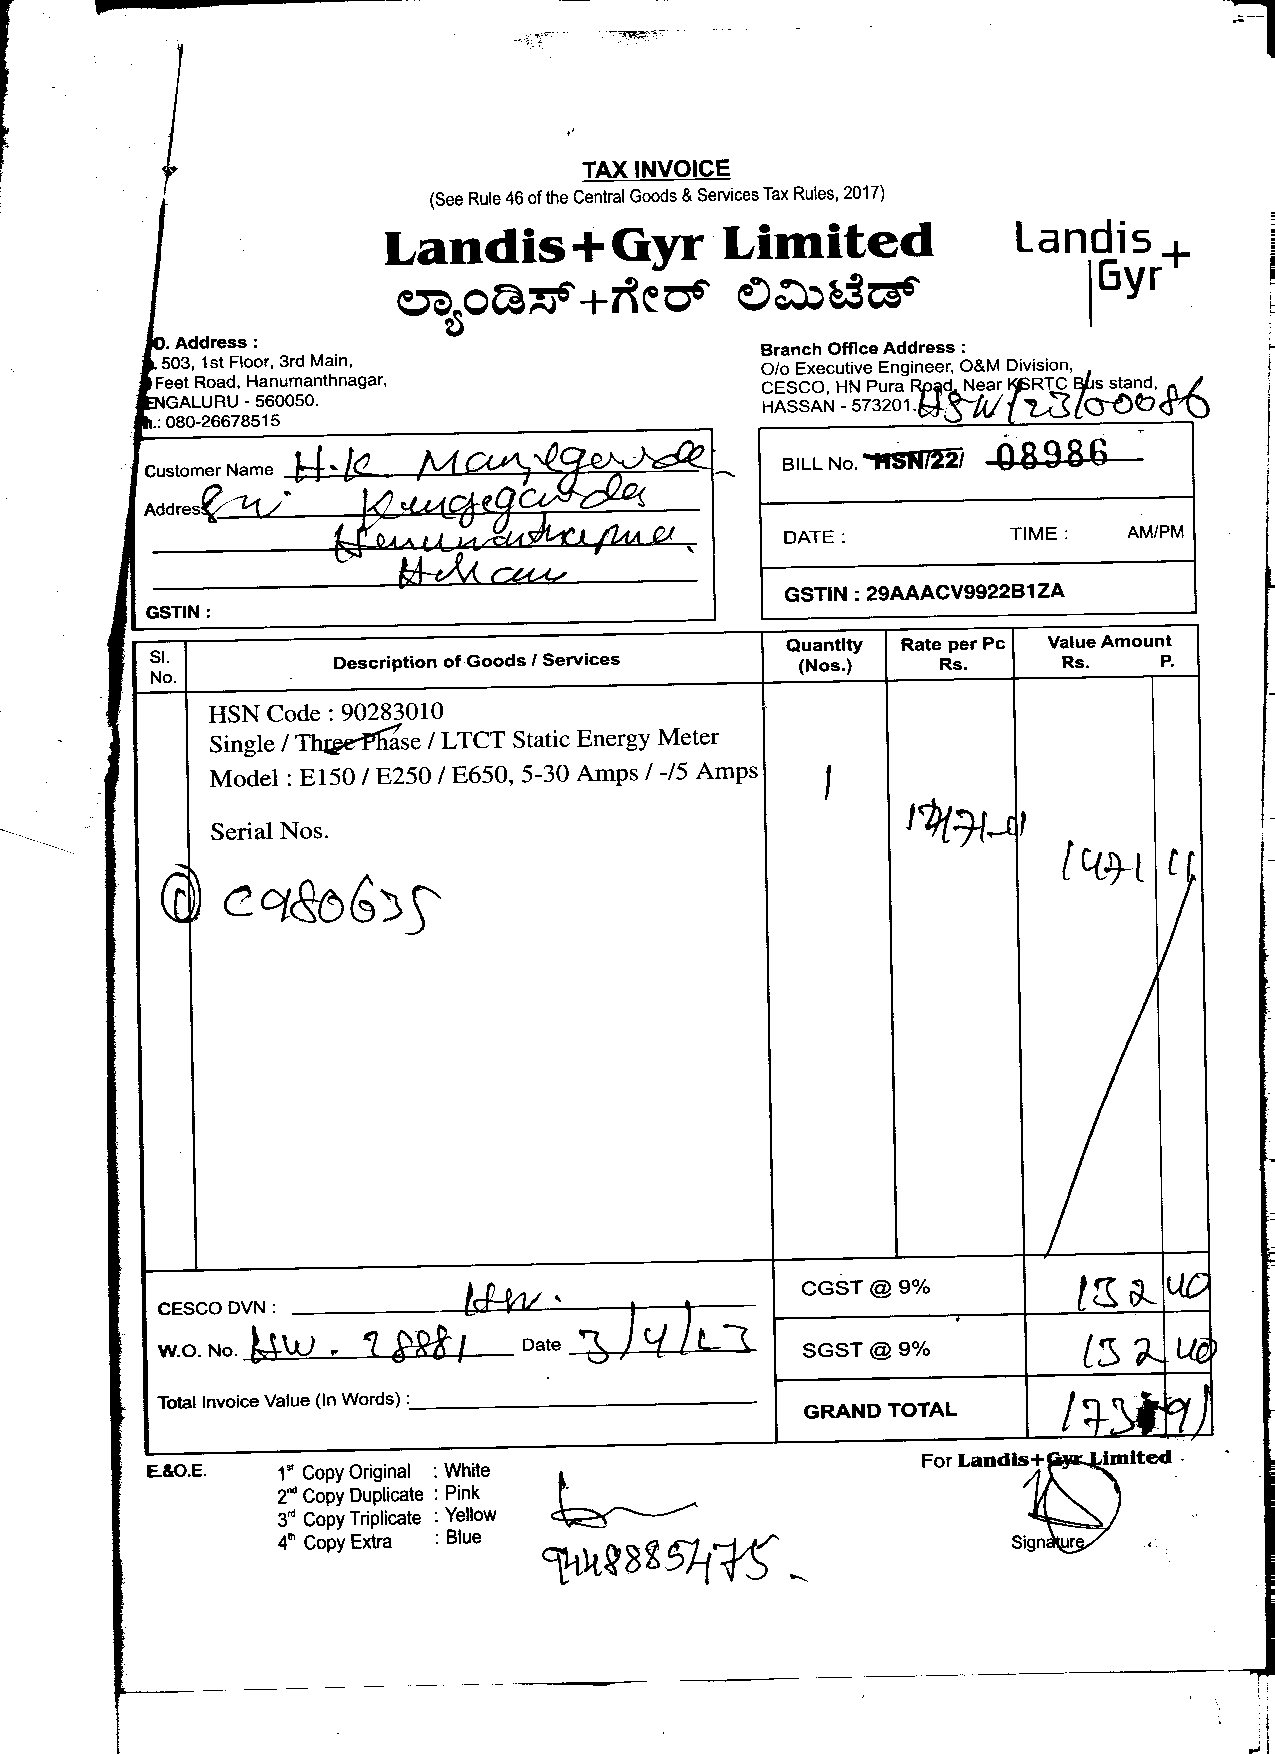 TAX INVOICE
(See Rule 46 of the Central Goods & Services Tax Rules, 2017)
Landis+Gyr Limited
Landis+
Gyr
ಲ್ಯಾಂಡಿಸ್+ಗೇರ್ ಲಿಮಿಟೆಡ್
O. Address :
503, 1st Floor, 3rd Main,
Feet Road, Hanumanthnagar,
ENGALURU - 560050.
: 080-26678515
Branch Office Address :
O/o Executive Engineer, O&M Division,
CESCO, HN Pura Road, Near KSRTC Bus stand,
HASSAN - 573201.
HSN/23/00086
Customer Name H.K
Address
GSTIN :
BILL No. HSN/22/ 08986
DATE : TIME : AM/PM
GSTIN : 29AAACV9922B1ZA
Sl. No. Description of Goods / Services Quantity (Nos.) Rate per Pc Rs. Value Amount Rs. P.
HSN Code : 90283010
Single / Three Phase / LTCT Static Energy Meter
Model : E150 / E250 / E650, 5-30 Amps / -/5 Amps 1
Serial Nos.
1471
C980635
CESCO DVN :
CGST @ 9% 132 40
W.O. No. HW. 28881 Date 3/4/23
SGST @ 9% 132 40
Total Invoice Value (In Words) :
GRAND TOTAL
E.&O.E.
1st Copy Original : White
2nd Copy Duplicate : Pink
3rd Copy Triplicate : Yellow
4th Copy Extra : Blue
For Landis+Gyr Limited
Signature
9448885475